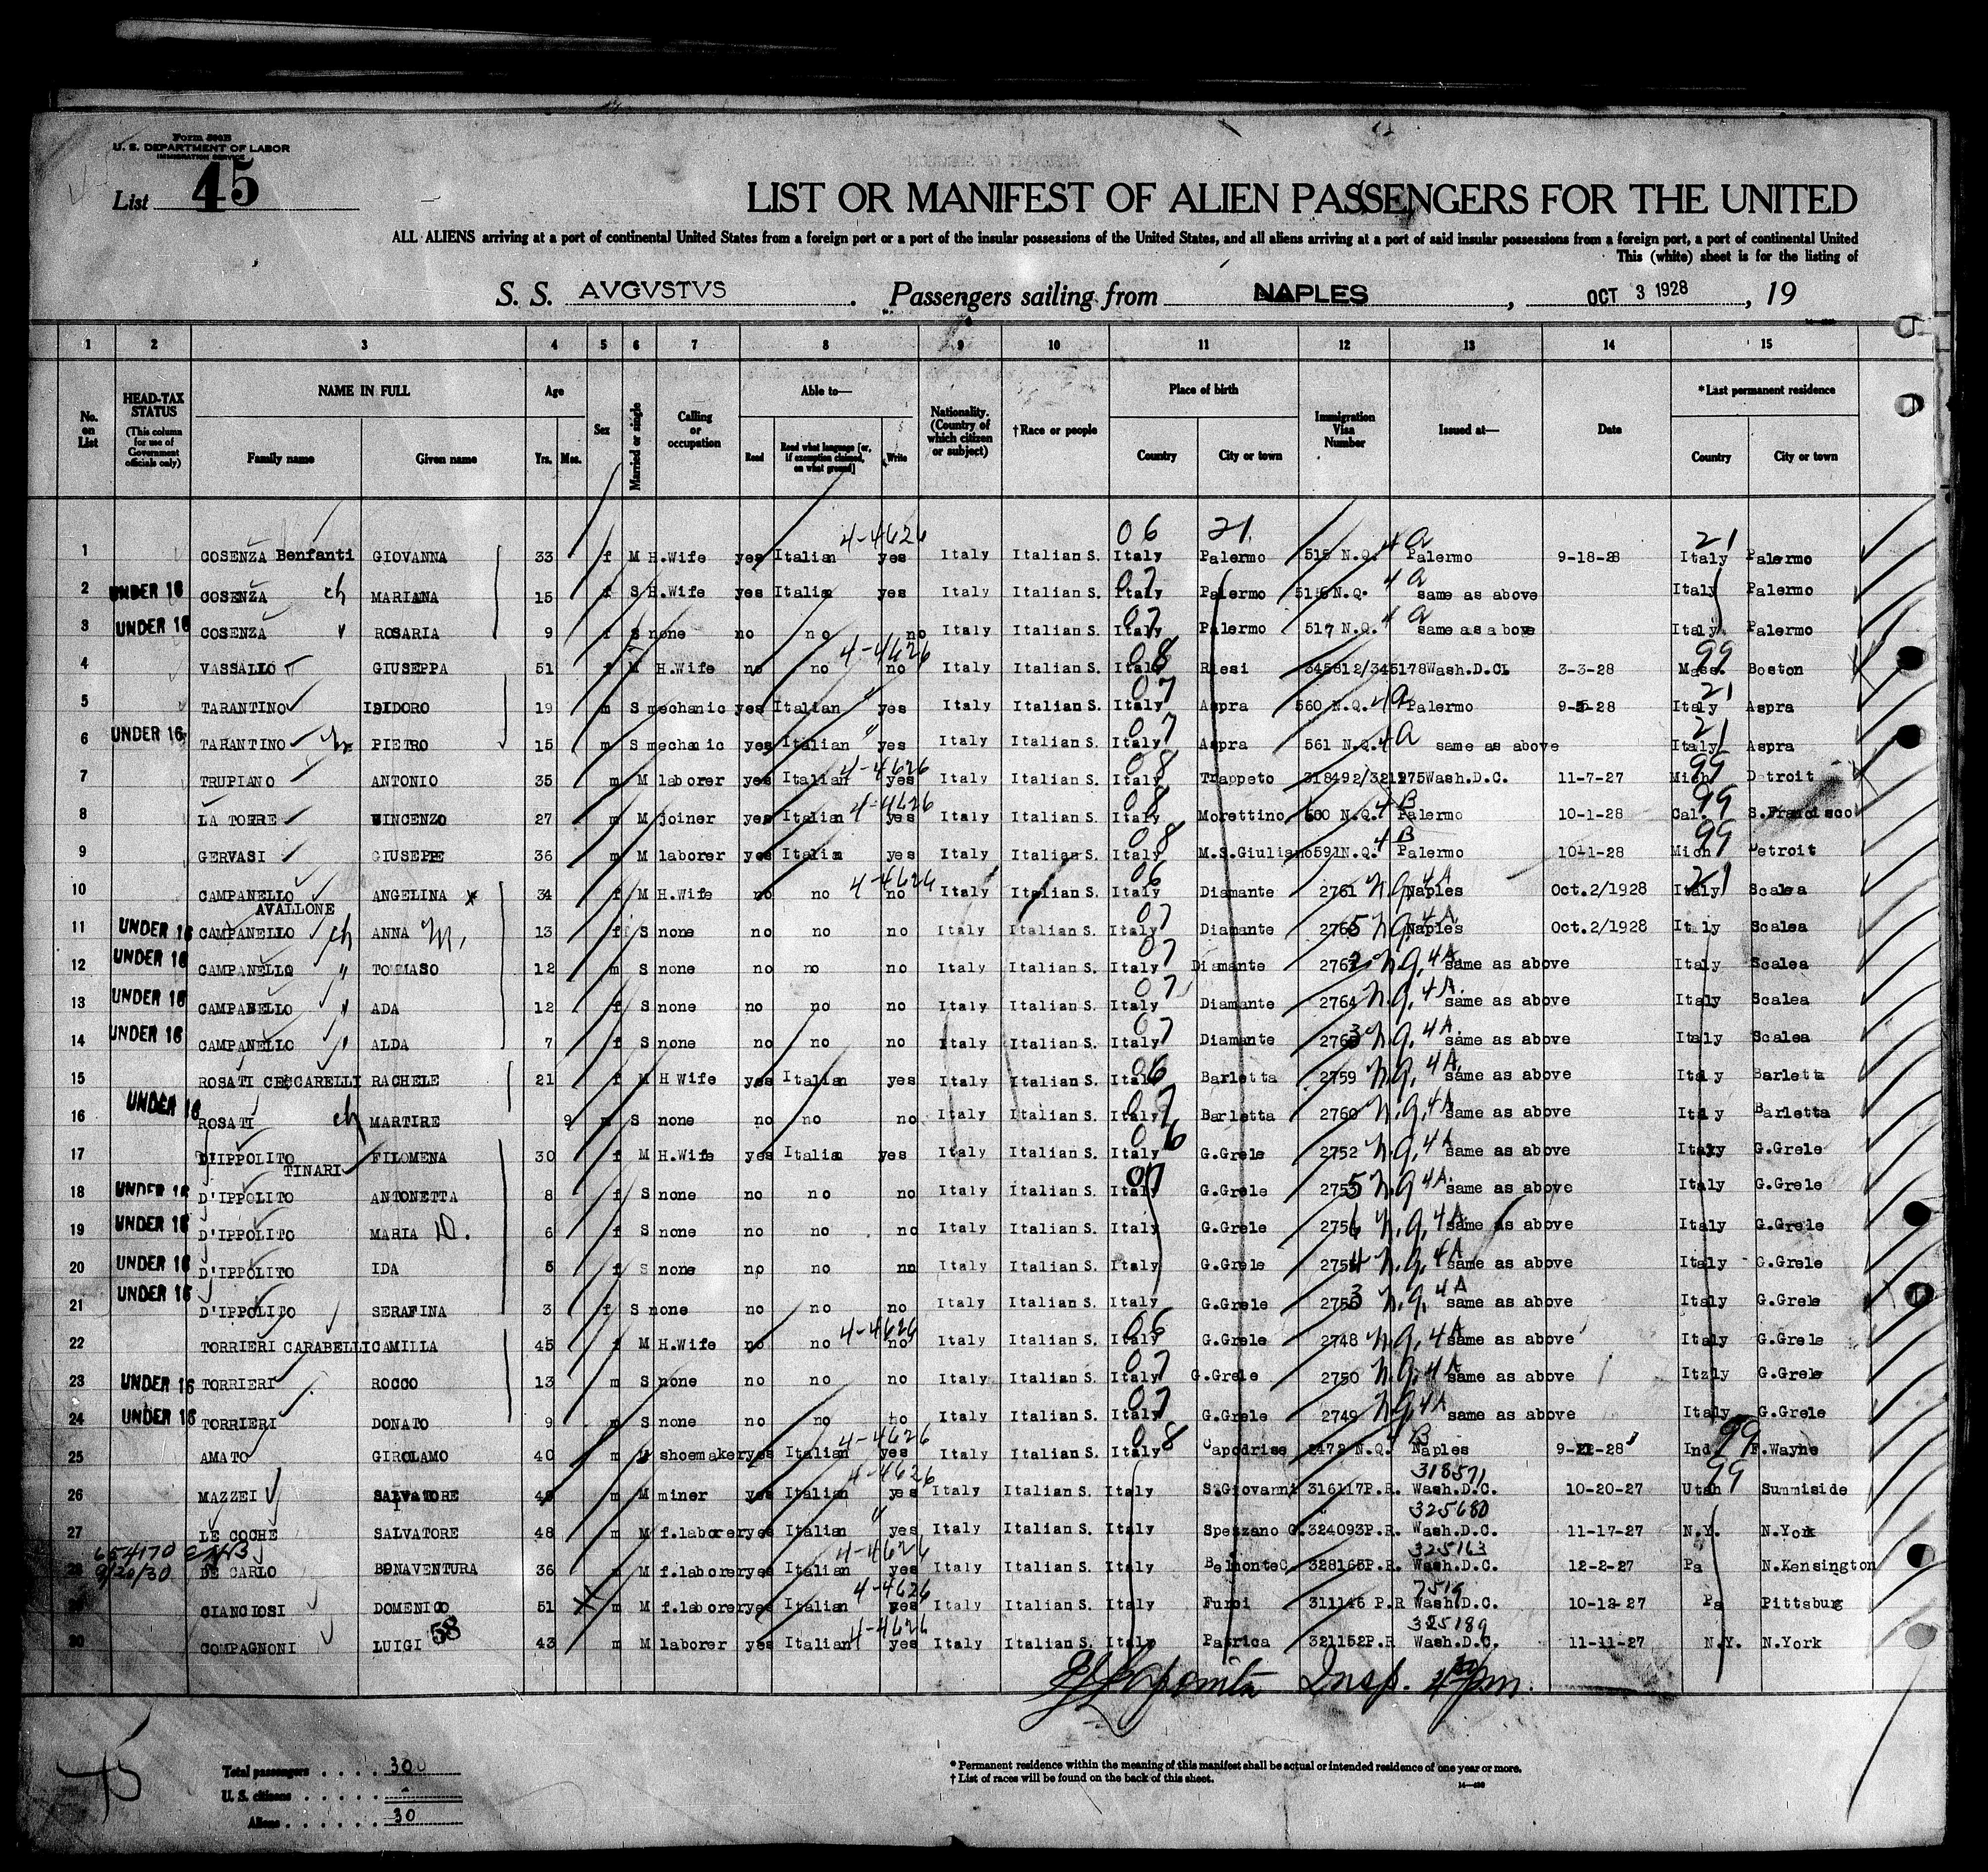 Form 500B
U. S. DEPARTMENT OF LABOR
IMMIGRATION SERVICE
List 45
LIST OR MANIFEST OF ALIEN PASSENGERS FOR THE UNITED
ALL ALIENS arriving at a port of continental United States from a foreign port or a port of the insular possessions of the United States, and all aliens arriving at a port of said insular possessions from a foreign port, a port of continental United
This (white) sheet is for the listing of
S. S. AVGVSTVS. Passengers sailing from NAPLES, OCT 3 1928, 19
1 2 3 4 5 6 7 8 9 10 11 12 13 14 15
No. on List
HEAD-TAX STATUS (This column for use of Government officials only)
NAME IN FULL Family name Given name
Age Yrs. Mos.
Sex
Married or single
Calling or occupation
Able to— Read Read what language [or, if exemption claimed, on what ground] Write
Nationality. (Country of which citizen or subject)
†Race or people
Place of birth Country City or town
Immigration Visa Number
Issued at—
Date
*Last permanent residence Country City or town
4-4626 06 21 4a 21
1 COSENZA Benfanti GIOVANNA 33 f M H.Wife yes Italian yes Italy Italian S. Italy Palermo 515 N.Q. Palermo 9-18-28 Italy Palermo
2 UNDER 16 COSENZA ch MARIANA 15 f S H.Wife yes Italian yes Italy Italian S. 07 Italy Palermo 516 N.Q. 4a same as above Italy Palermo
3 UNDER 16 COSENZA " ROSARIA 9 f S none no no no Italy Italian S. 07 Italy Palermo 517 N.Q. 4a same as above Italy Palermo
4 VASSALLO GIUSEPPA 51 f M H.Wife no no 4-4626 no Italy Italian S. 08 Italy Riesi 345812/345178 Wash.D.C. 3-3-28 99 Mass. Boston
5 TARANTINO ISIDORO 19 m S mechanic yes Italian " yes Italy Italian S. 07 Italy Aspra 560 N.Q. 4a Palermo 9-5-28 21 Italy Aspra
6 UNDER 16 TARANTINO PIETRO 15 m S mechanic yes Italian " yes Italy Italian S. 07 Italy Aspra 561 N.Q. 4a same as above 21 Italy Aspra
7 TRUPIANO ANTONIO 35 m M laborer yes Italian 4-4626 yes Italy Italian S. 08 Italy Trappeto 318492/321975 Wash.D.C. 11-7-27 99 Mich Detroit
8 LA TORRE VINCENZO 27 m M joiner yes Italian 4-4626 yes Italy Italian S. 08 Italy Morettino N.Q. 4B Palermo 10-1-28 99 Cal. S.Francisco
9 GERVASI GIUSEPPE 36 m M laborer yes Italian yes Italy Italian S. 08 Italy M.S.Giuliano 591 N.Q. 4B Palermo 10-1-28 99 Mich Detroit
10 CAMPANELLO AVALLONE ANGELINA x 34 f M H.Wife no no 4-4626 no Italy Italian S. 06 Italy Diamante 2761 n.q. 4A Naples Oct.2/1928 21 Italy Scalea
11 UNDER 16 CAMPANELLO ch ANNA M. 13 f S none no no no Italy Italian S. 07 Italy Diamante 2765 n.q. 4A Naples Oct.2/1928 Italy Scalea
12 UNDER 16 CAMPANELLO " TOMMASO 12 m S none no no no Italy Italian S. 07 Italy Diamante 2762 n.q. 4A same as above Italy Scalea
13 UNDER 16 CAMPANELLO " ADA 12 f S none no no no Italy Italian S. 07 Italy Diamante 2764 n.q. 4A. same as above Italy Scalea
14 UNDER 16 CAMPANELLO " ALDA 7 f S none no no no Italy Italian S. 07 Italy Diamante 2763 n.q. 4A. same as above Italy Scalea
15 ROSATI CECCARELLI RACHELE 21 f M H Wife yes Italian yes Italy Italian S. 06 Italy Barletta 2759 n.q. 4A same as above Italy Barletta
16 UNDER 16 ROSATI ch MARTIRE 9 m S none no no no Italy Italian S. 07 Italy Barletta 2760 n.q. 4A same as above Italy Barletta
17 D'IPPOLITO TINARI FILOMENA 30 f M H.Wife yes Italian yes Italy Italian S. 06 Italy G.Grele 2752 n.q. 4A same as above Italy G.Grele
18 UNDER 16 D'IPPOLITO ANTONETTA 8 f S none no no no Italy Italian S. 07 Italy G.Grele 2755 n.q. 4A. same as above Italy G.Grele
19 UNDER 16 D'IPPOLITO MARIA D. 6 f S none no no no Italy Italian S. Italy G.Grele 2756 n.q. 4A same as above Italy G.Grele
20 UNDER 16 D'IPPOLITO IDA 5 f S none no no no Italy Italian S. Italy G.Grele 2754 n.q. 4A same as above Italy G.Grele
21 UNDER 16 D'IPPOLITO SERAFINA 3 f S none no no no Italy Italian S. Italy G.Grele 2753 n.q. 4A same as above Italy G.Grele
22 TORRIERI CARABELLI CAMILLA 45 f M H.Wife no no 4-4626 no Italy Italian S. 06 Italy G.Grele 2748 n.q. 4A same as above Italy G.Grele
23 UNDER 16 TORRIERI ROCCO 13 m S none no no no Italy Italian S. 07 Italy G.Grele 2750 n.q. 4A same as above Itzly G.Grele
24 UNDER 16 TORRIERI DONATO 9 m S none no no no Italy Italian S. 07 Italy G.Grele 2749 n.q. 4A same as above Italy G.Grele
25 AMATO GIROLAMO 40 m M shoemaker yes Italian 4-4626 yes Italy Italian S. 08 Italy Capodrise 2472 N.Q. 4B Naples 9-21-28 99 Ind F.Wayne
26 MAZZEI SALVATORE m M miner yes Italian 4-4626 yes Italy Italian S. Italy S.Giovanni 316117 P.R. 318571 Wash.D.C. 10-20-27 99 Utah Sunniside
27 LE COCHE SALVATORE 48 m M f.laborer yes Italian " yes Italy Italian S. Italy Spezzano G. 324093 P.R. 325680 Wash.D.C. 11-17-27 N.Y. N.York
654170
28 9/20/30 DE CARLO BONAVENTURA 36 m M f.laborer yes Italian 4-4626 yes Italy Italian S. Italy Belmonte C. 328165 P.R. 325163 Wash.D.C. 12-2-27 Pa N.Kensington
29 CIANCIOSI DOMENICO 51 m M f.laborer yes Italian 4-4626 yes Italy Italian S. Italy Furci 311146 P.R 7519 Wash.D.C. 10-13-27 Pa Pittsburg
30 COMPAGNONI LUIGI 58 43 m M laborer yes Italian 4-4626 yes Italy Italian S. Italy Patrica 321152 P.R 325189 Wash.D.C. 11-11-27 N.Y. N.York
Insp.
Total passengers . . . . 30
U. S. citizens . . . . . -
Aliens . . . . . . 30
* Permanent residence within the meaning of this manifest shall be actual or intended residence of one year or more.
† List of races will be found on the back of this sheet.